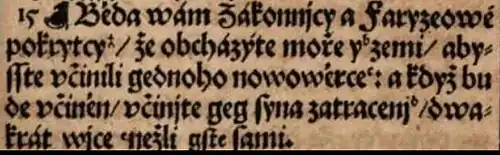 15 ☙ Běda wám Zákonnijcy a Faryzeowé
pokrytcy²/ že obcházýte moře yᵇ zemi/ aby-
sste včinili gednoho nowowěrceᶜ: a když bu
de včiněn/ včinjte geg syna zatracenjᵇ/ dwa-
krát wjce nežli gste sami.